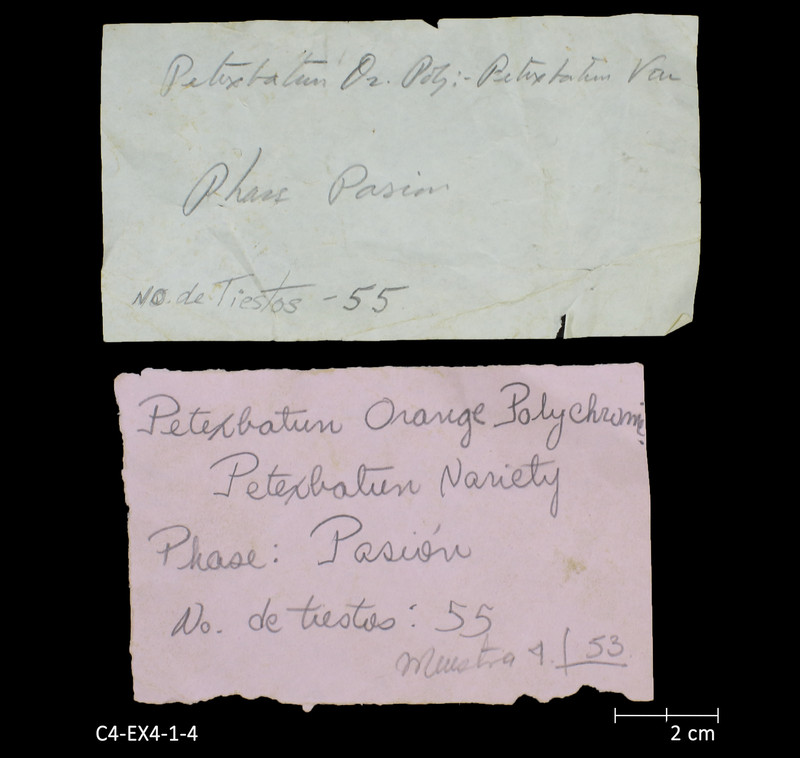 Petexbatun Or. Poly:- Petexbatun Var
Phase Pasion
No. de Tiestos - 55
Petexbatun Orange Polychrome:
Petexbatun Variety
Phase: Pasión
No. de tiestos: 55
Muestra 4. 53
C4-EX4-1-4
2 cm